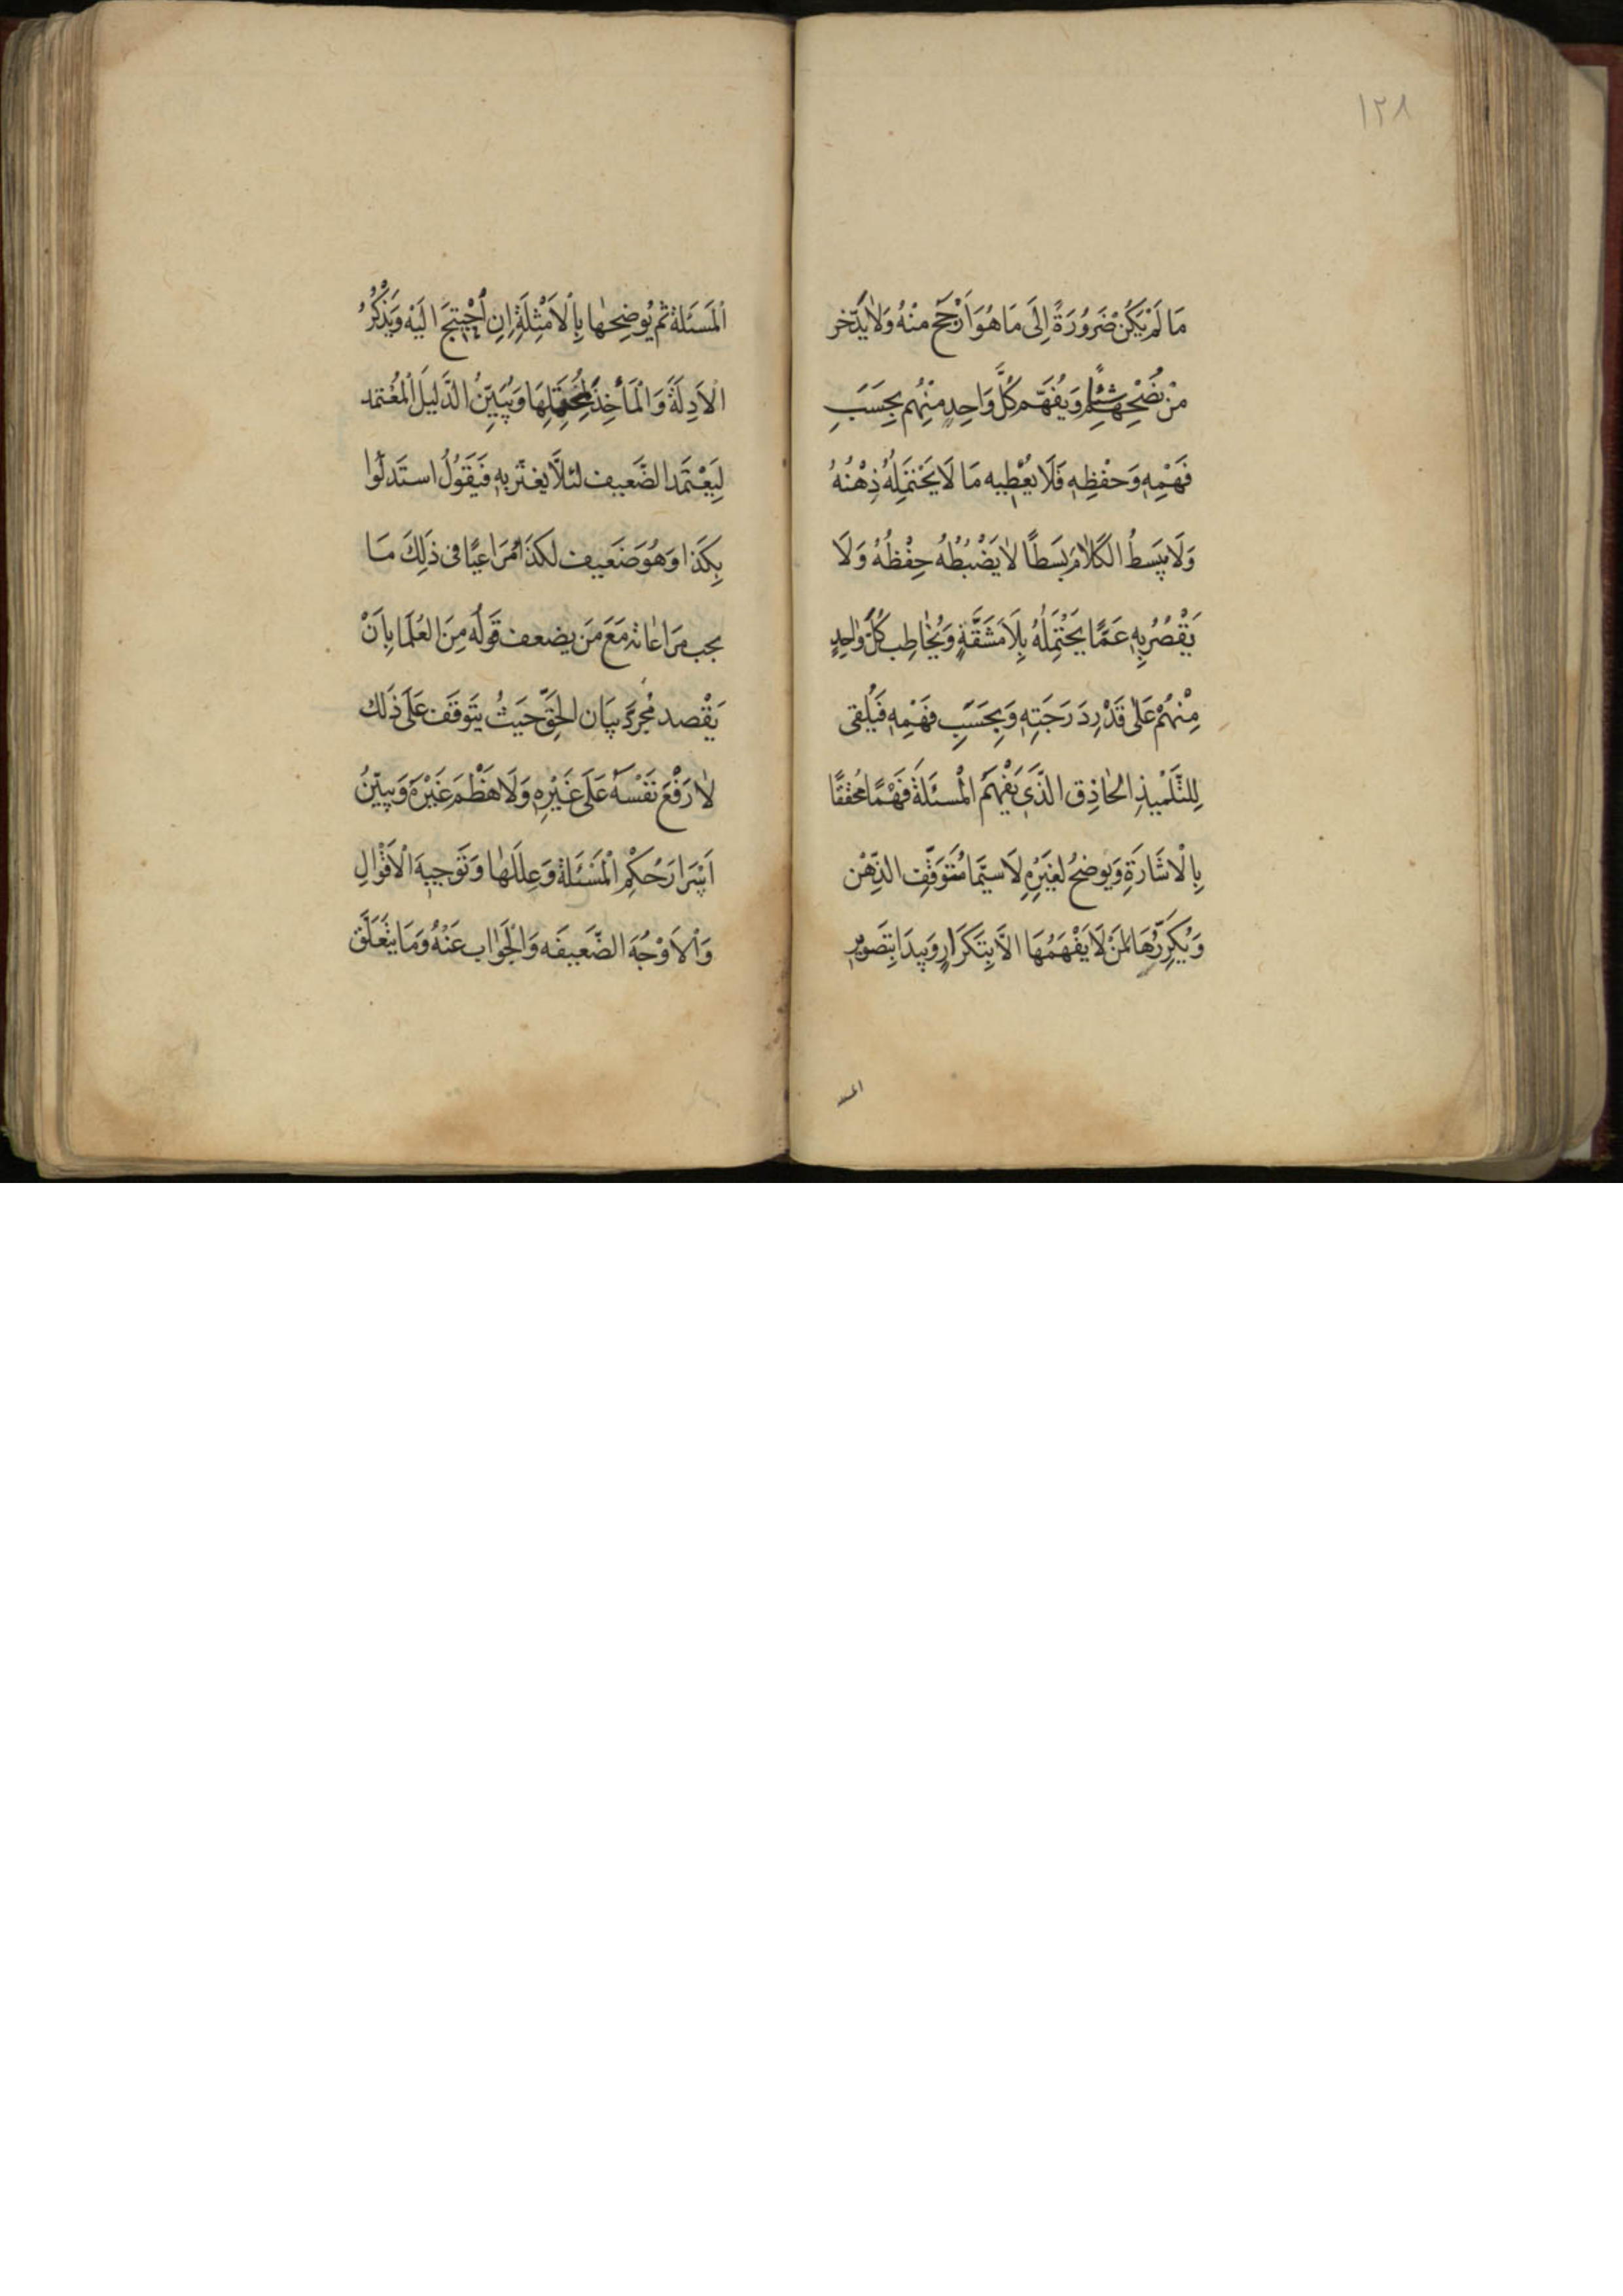 ١٢٨
مَا لَمْ يَكُنْ ضَرُورَةً اِلَى مَا هُوَ اَرْجَحُ مِنْهُ وَلَا يَدَّخِر
مِنْ نُصْحِهِمْ شَيْئًا وَيُفَهِّم كُلَّ وَاحِدٍ مِنْهُم بِحَسَبِ
فَهْمِهِ وَحِفْظِهِ فَلَا يُعْطِيهِ مَا لَا يَحْتَمِلُهُ ذِهْنُهُ
وَلَا يَبْسطُ الكَلَامَ بَسْطًا لَا يَضْبُطُهُ حِفْظُهُ وَلَا
يَقْصُرُ بِهِ عَمَّا يَحْتَمِلُهُ بِلَا مَشَقَّةٍ وَيُخَاطِب كُلَّ وَاحِدٍ
مِنْهُمْ عَلَى قَدْرِ دَرَجَتِهِ وَبِحَسَبِ فَهْمِهِ فَيُلْقى
لِلتِّلْمِيذِ الحَاذِق الَّذى يَفْهَمُ الْمَسئَلَةَ فَهْمًا مُحَقّقًا
بِالْاشَارَةِ وَيوضِحُ لِغَيْرِهِ لَا سِيَّمَا مُتَوَقِّف الذِّهْن
وَيُكَرِّرُهَا لِمَنْ لَا يَفْهَمُهَا الَّا بِتَكْرَارٍ وَيَبدَا بِتَصْوِيرِ
المسئلة
اَلْمَسْئَلَة ثم يُوضِحهَا بِالْاَمْثِلَةِ اِنِ اُحْتِيجَ الَيْهِ وَيَذْكُرُ
الْاَدِلَةَ وَالْمَأْخِذَ لِمُحْتَمِلِهَا وَيُبَيِّنُ الدَّلِيلَ الْمُعْتمَد
لِيَعْتَمَد الضَّعيف لئَلَّا يغتَر بِهِ فَيَقُولُ استَدَلُّوا
بِكَذَا وَهُوَ ضَعِيف لكَذَا مُرَاعِيًا فى ذَلِكَ مَا
يجب مرَاعَاته مَعَ مَن يضعف قَوله مِنَ العُلَمَا بِاَنْ
يَقْصد مُجَرّدَ بَيَان الحَقّ حَيثُ يَتَوَقَف عَلَى ذَلك
لَا رَفْعَ نَفْسه عَلَى غَيْرِهِ وَلَا هَظْمَ غَيْرَهُ وَيبيّنُ
اَسْرَارَ حُكْمِ الْمَسْئَلَةِ وَعِلَلهَا وَتَوجيهَ الْاَقْوَالِ
وَالْاَوْجُهَ الضَّعيفَه وَالجَوَاب عَنْهُ وَمَا يتَعَلَّق